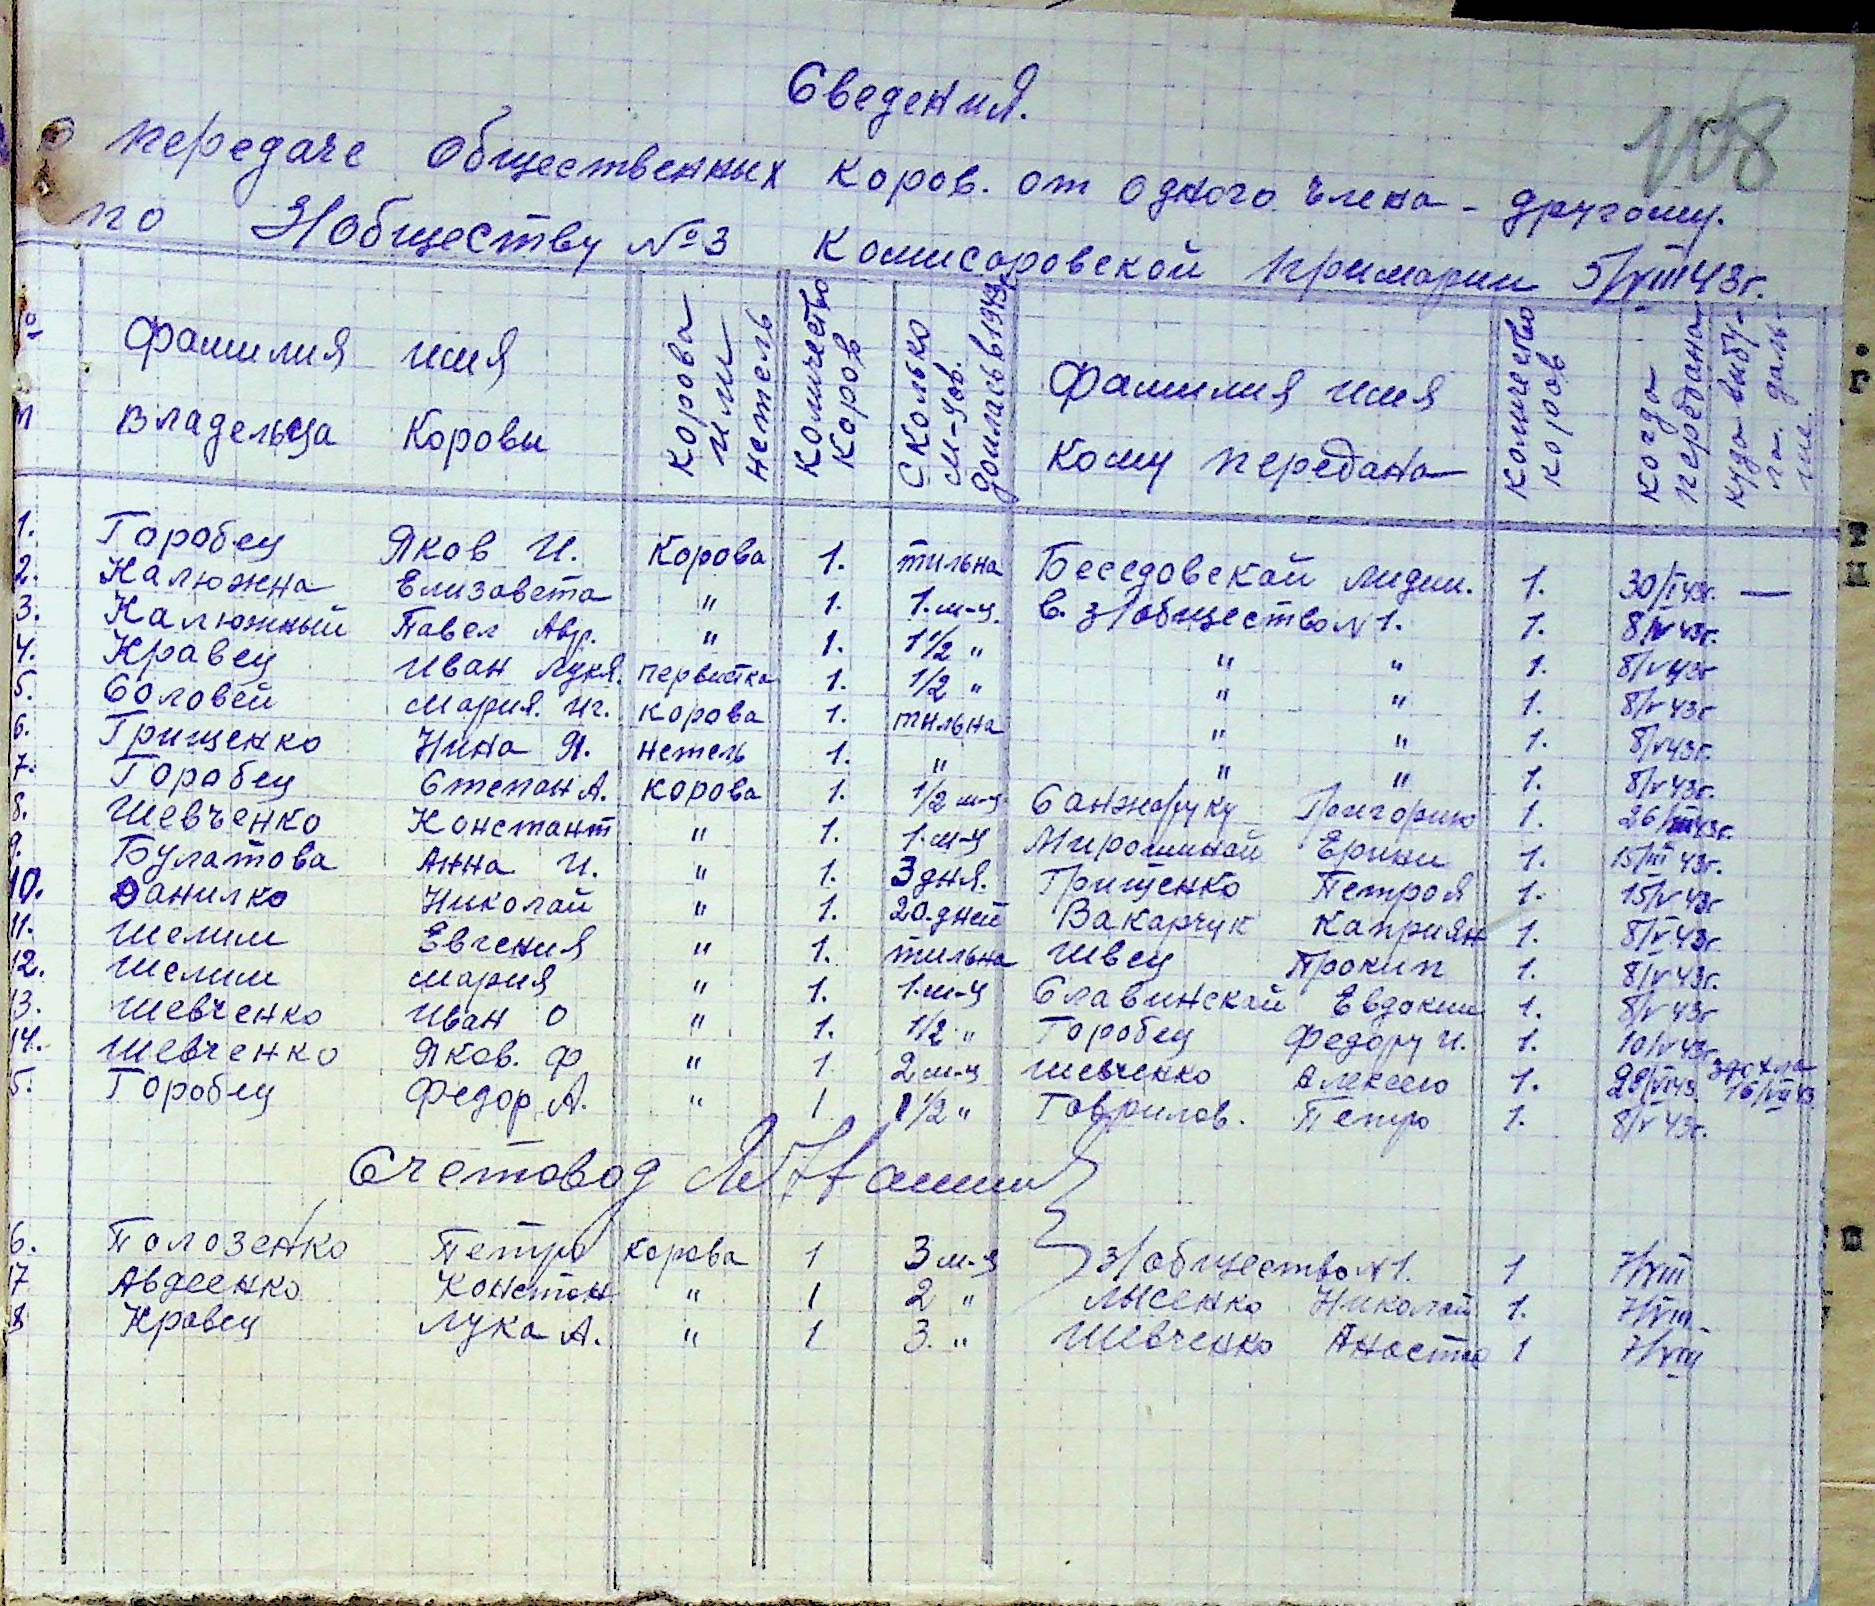 Сведения.
108
о передаче Общественных коров. от одного члена - другому.
по З/обществу №3 Комисаровской примарии 5/VIII 43г.
№ п Фамилия имя Владельца Коровы Корова или нетель Количество Коров Сколько м-цов. доилась в 1943г Фамилия имя Кому передана Количество коров когда передана куда выбыла дальше.
1. Горобец Яков И. Корова 1. тильна Беседовской Лидии. 1. 30/I 43г. —
2. Калюжна Елизавета " 1. 1. м-ц. в. з/общество №1. 1. 8/V 43г.
3. Калюжный Павел Авр. " 1. 1 1/2 " " " 1. 8/V 43г
4. Кравец Иван Лукя. первистка 1. 1/2 " " " 1. 8/V 43г
5. Соловей Мария. Иг. корова 1. тильна " " 1. 8/V 43г.
6. Грищенко Нина Я. нетель 1. " " " 1. 8/V 43г.
7. Горобец Степан А. корова 1. 1/2 м-ц Санжаруку Григорию 1. 26/III 43г.
8. Шевченко Констант " 1. 1. м-ц Мирошиной Ерини 1. 15/III 43г.
9. Булатова Анна И. " 1. 3 дня. Грищенко Петроя 1. 15/V 43г
10. Данилко Николай " 1. 20. дней Вакарчук Каприян 1. 8/V 43г.
11. Шелим Евгения " 1. тильна Швец Прокип 1. 8/V 43г.
12. Шелим Мария " 1. 1. м-ц Славинской Евдокии 1. 8/V 43г
3. Шевченко Иван О " 1. 1/2 " Горобец Федору И. 1. 10/V 43г.
14. Шевченко Яков. Ф " 1 2 м-ц Шевченко Алексею 1. 29/VI 43. здохла 16/VII 43
5. Горобец Федор А. " 1 1 1/2 " Гаврилов. Петро 1. 8/V 43г.
Счетовод
6. Полозенко Петро корова 1 3 м-ц З/общество №1. 1 7/VIII
17 Авдеенко Констан " 1 2 " Лысенко Николай 1. 7/VIII
8 Кравец Лука А. " 1 3. " Шевченко Анастас 1 7/VIII